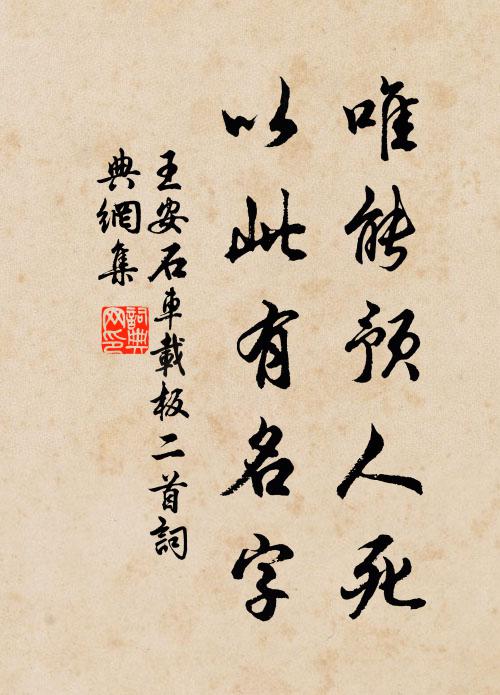 唯能預人死
以此有名字
王安石車載板二首詞
典網集
詞典網印